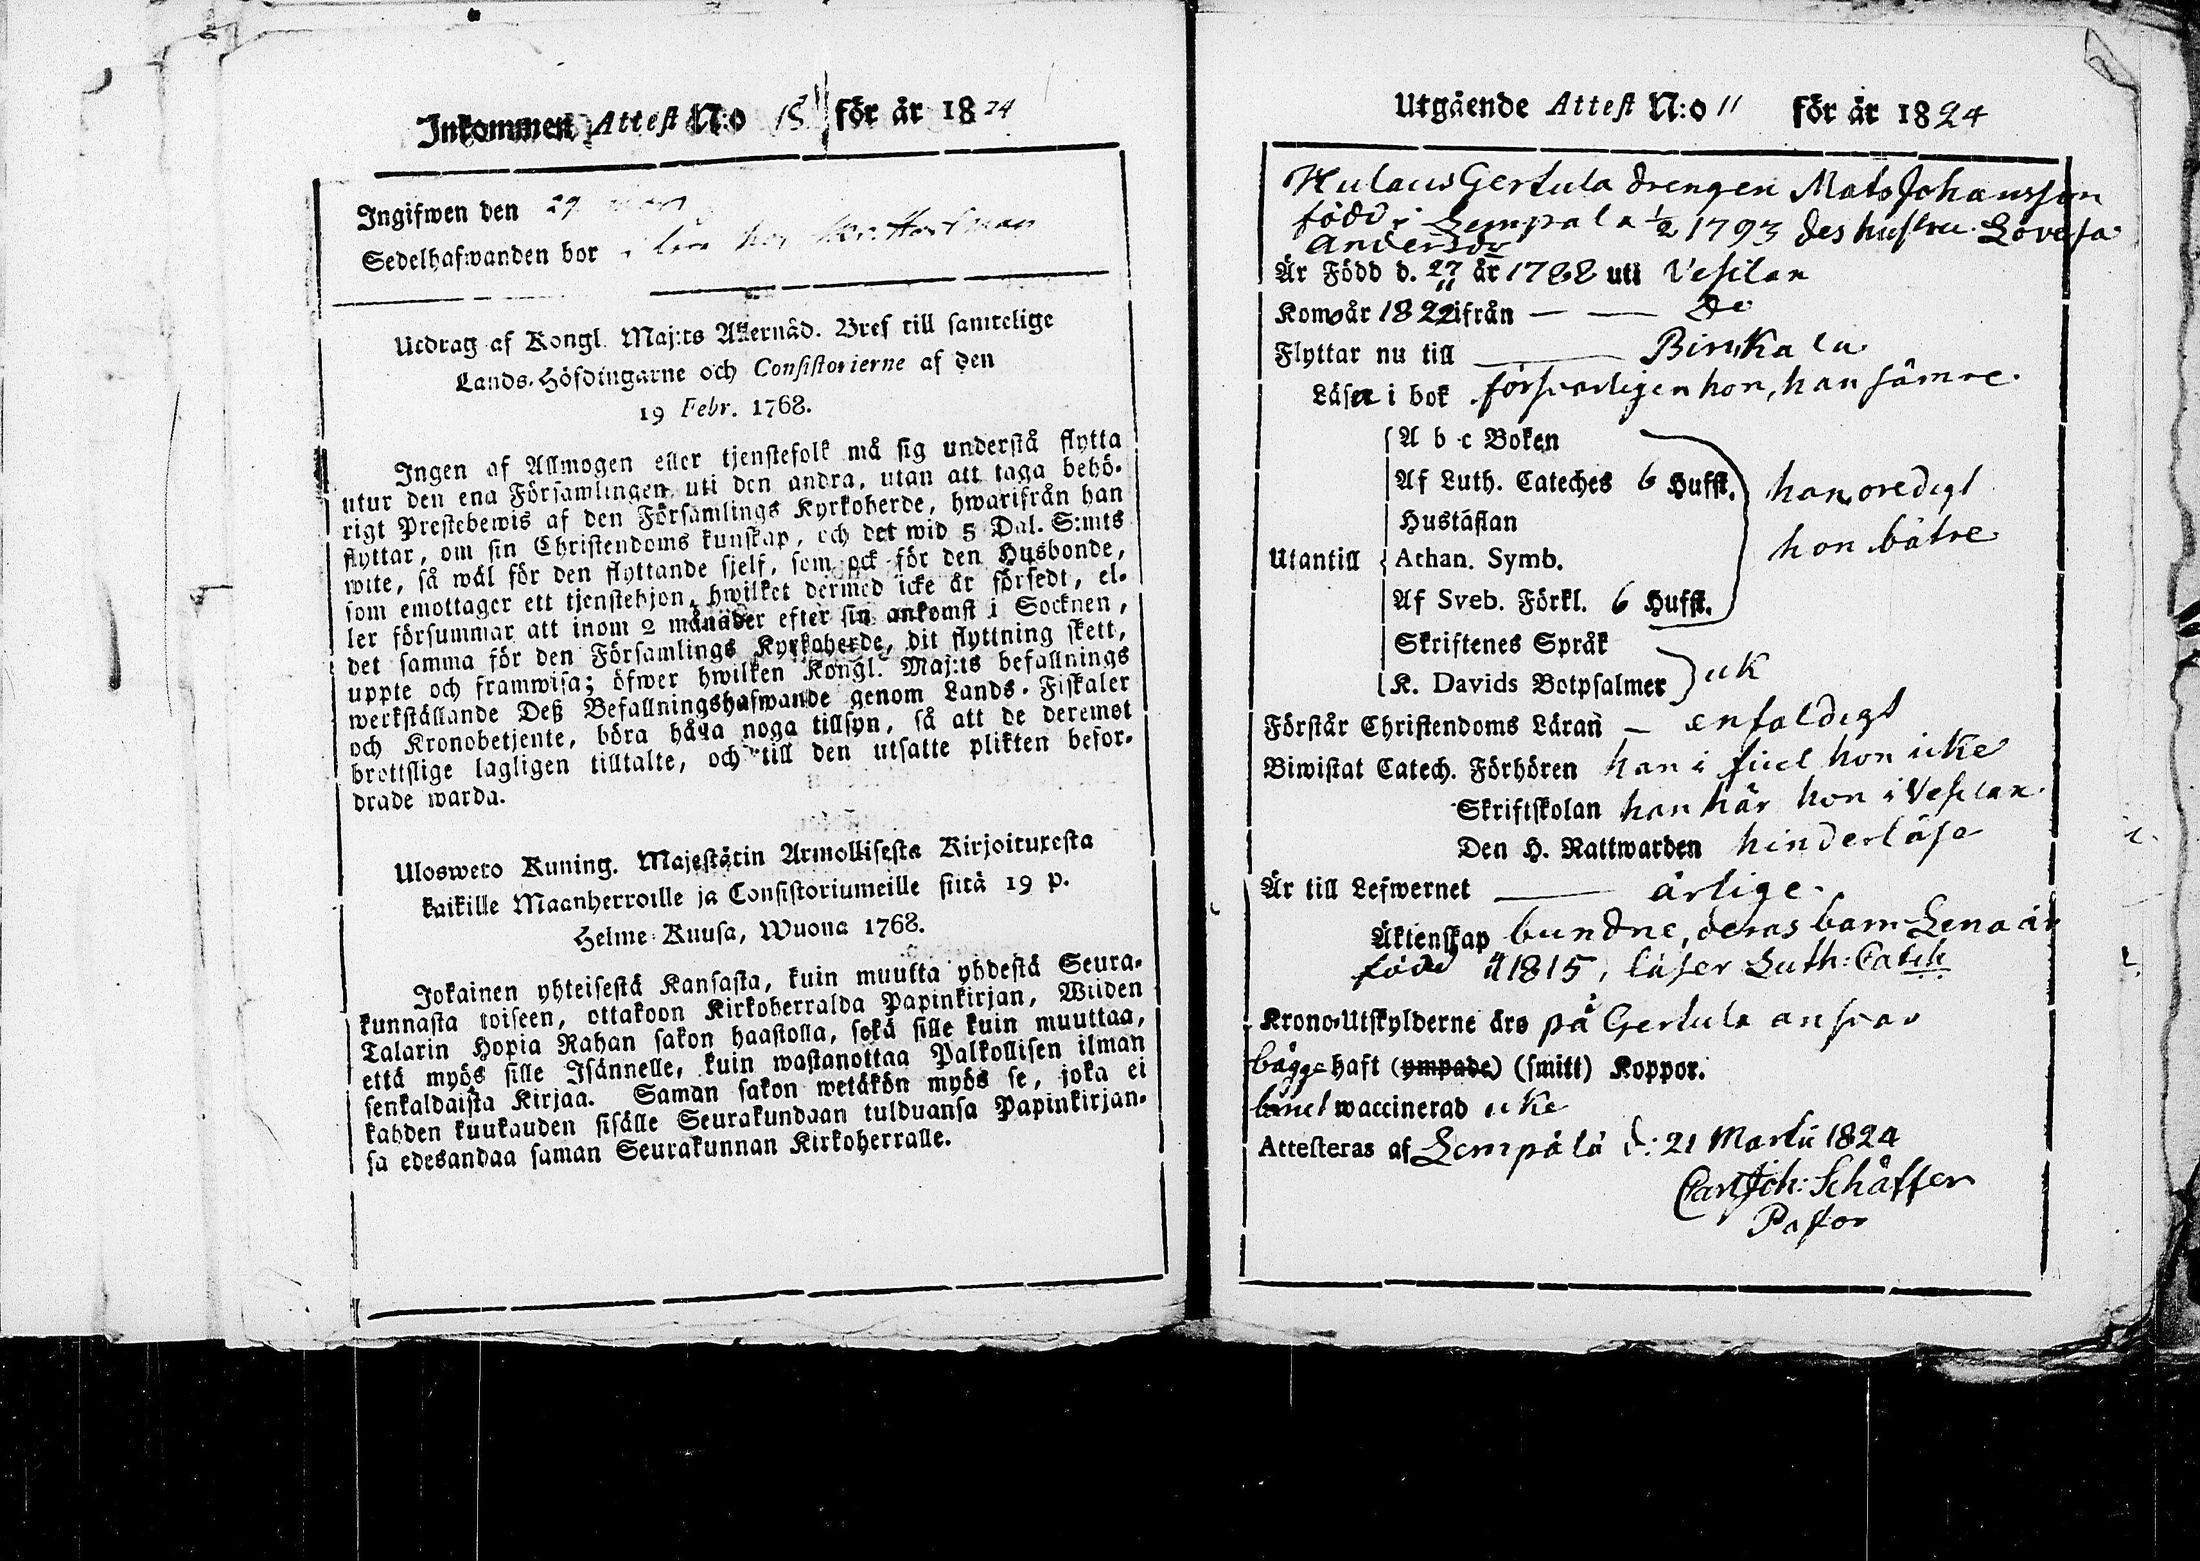 Inkommen Attest N:o 18 för år 1824
Ingifwen den 29
Sedelhafwanden bor
Utdrag af Kongl. Maj:ts Allernåd. Bref till samtelige
Lands-Höfdingarne och Consistorierne af den
19 Febr. 1768.
Ingen af Allmogen eller tjenstefolk må sig understå flytta
utur den ena Församlingen uti den andra, utan att taga behö-
rigt Prestebewis af den Församlings Kyrkoherde, hwarifrån han
flyttar, om sin Christendoms kunskap, och det wid 5 Dal. S:mts
wite, så wäl för den flyttande sjelf, som ock för den Husbonde,
som emottager ett tjenstehjon, hwilket dermed icke är försedt, el-
ler försummar att inom 2 månader efter sin ankomst i Socknen,
det samma för den Församlings Kyrkoherde, dit flyttning skett,
uppte och framwisa; öfwer hwilken Kongl. Maj:ts befallnings
werkställande Deß Befallningshafwande genom Lands-Fiskaler
och Kronobetjente, böra hafwa noga tillsyn, så att de deremot
brottslige lagligen tilltalte, och till den utsatte plikten befor-
drade warda.
Ulosweto Kuning. Majestätin Armollisesta Kirjoituxesta
kaikille Maanherroille ja Consistoriumeille siitä 19 p.
Helme-Kuusa, Wuona 1768.
Jokainen yhteisestä Kansasta, kuin muutta yhdestä Seura-
kunnasta toiseen, ottakoon Kirkoherralda Papinkirjan, Wiiden
Talarin Hopia Rahan sakon haastolla, sekä sille kuin muuttaa,
että myös sille Isännelle, kuin wastanottaa Palkollisen ilman
senkaldaista Kirjaa. Saman sakon wetäkön myös se, joka ei
kahden kuukauden sisälle Seurakundaan tulduansa Papinkirjan-
sa edesandaa saman Seurakunnan Kirkoherralle.
Utgående Attest N:o 11 för år 1824
Hulaus Gertula drengen Mats Johansson
född i Lempala 1/2 1793 des hustru Lovisa
Andersdr
Är Född d. 27/11 år 1788 uti Vesilax
Kom år 1822 ifrån — — Do
Flyttar nu till — Birkala
Läser i bok försvarligen hon, han sämre.
A b c Boken
Af Luth. Cateches 6 Hufst. han oredigt
Hustaflan
hon bätre
Utantill Athan. Symb.
Af Sveb. Förkl. 6 Hufst.
Skriftenes Språk
K. Davids Botpsalmer ick
Förstår Christendoms Läran — enfaldigt
Biwistat Catech. Förhören han i fiol hon icke
Skriftskolan han här hon i Vesilax.
Den H. Nattwarden hinderlöse
Är till Lefwernet — ärlige.
Äktenskap bundne, deras barn Lena är
född 1815, läser Luth: Catch
Krono-Utskylderne äro på Gertula ansvar
bägge haft (ympade) (smitt) Koppor.
barnet waccinerad icke
Attesteras af Lempälä d: 21 Martii 1824
Carl Joh: Schäffer
Pastor